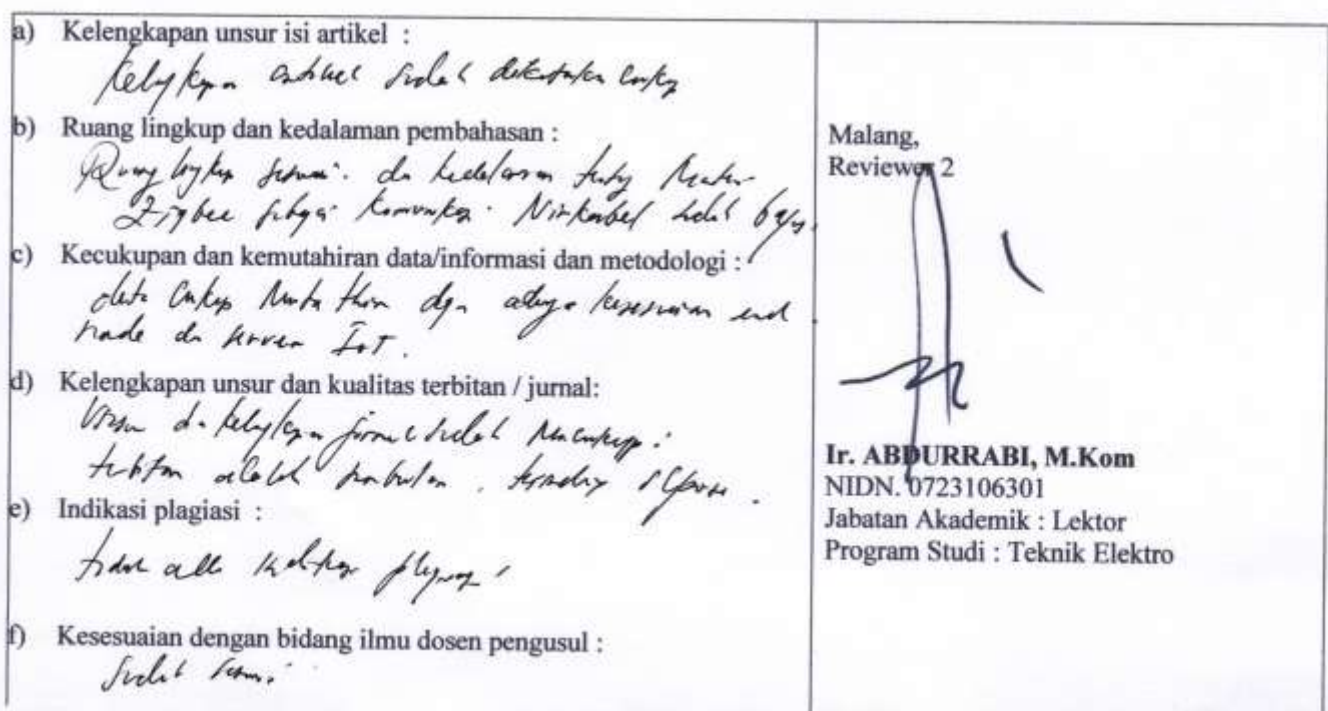 a) Kelengkapan unsur isi artikel :
artikel sudah dikatakan cukup
b) Ruang lingkup dan kedalaman pembahasan :
Ruang lingkup sesuai. dan kedalaman
Zigbee sebagai komunikasi Nirkabel
c) Kecukupan dan kemutahiran data/informasi dan metodologi :
data cukup dgn adanya kesesuaian end
node dan server IoT.
d) Kelengkapan unsur dan kualitas terbitan / jurnal:
Unsur dan kelengkapan jurnal sudah
terbitan adalah
e) Indikasi plagiasi :
tidak ada indikasi plagiasi
f) Kesesuaian dengan bidang ilmu dosen pengusul :
Sudah sesuai
Malang,
Reviewer 2
Ir. ABDURRABI, M.Kom
NIDN. 0723106301
Jabatan Akademik : Lektor
Program Studi : Teknik Elektro